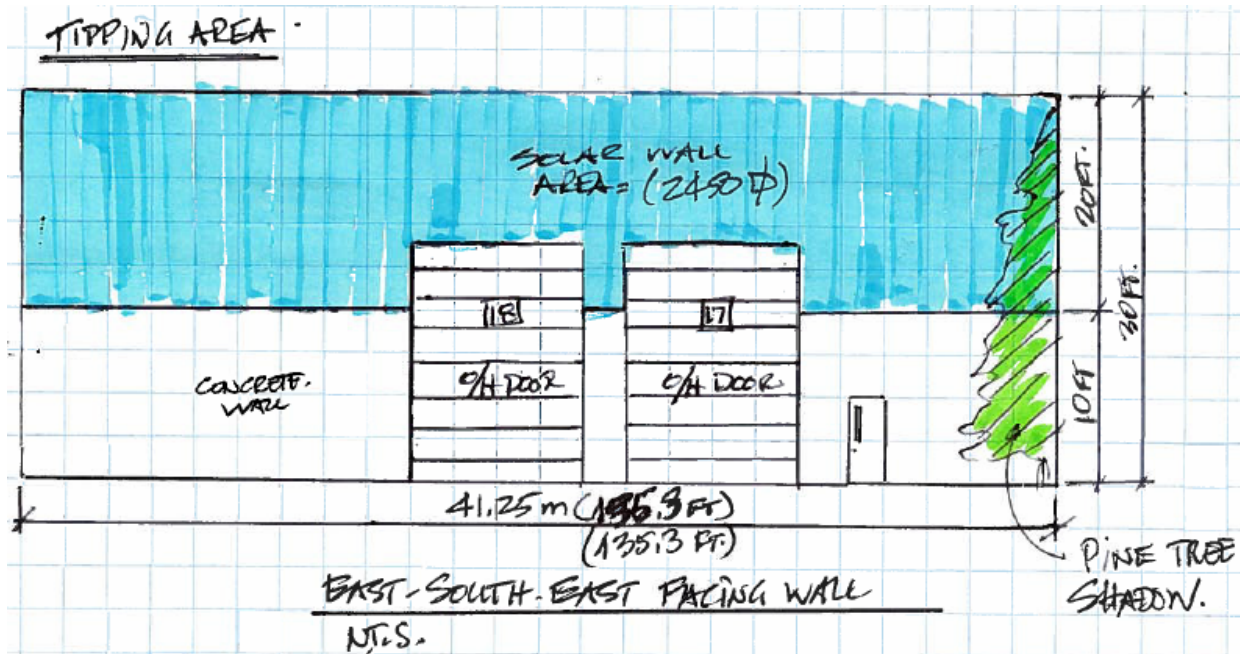 TIPPING AREA.
SOLAR WALL
AREA = (2450 ⌀)
20FT.
30FT.
18
17
CONCRETE.
WALL
O/H DOOR
O/H DOOR
10FT
41.25m (135.3 FT)
(135.3 FT.)
PINE TREE
SHADOW.
EAST-SOUTH-EAST FACING WALL
N.T.S.